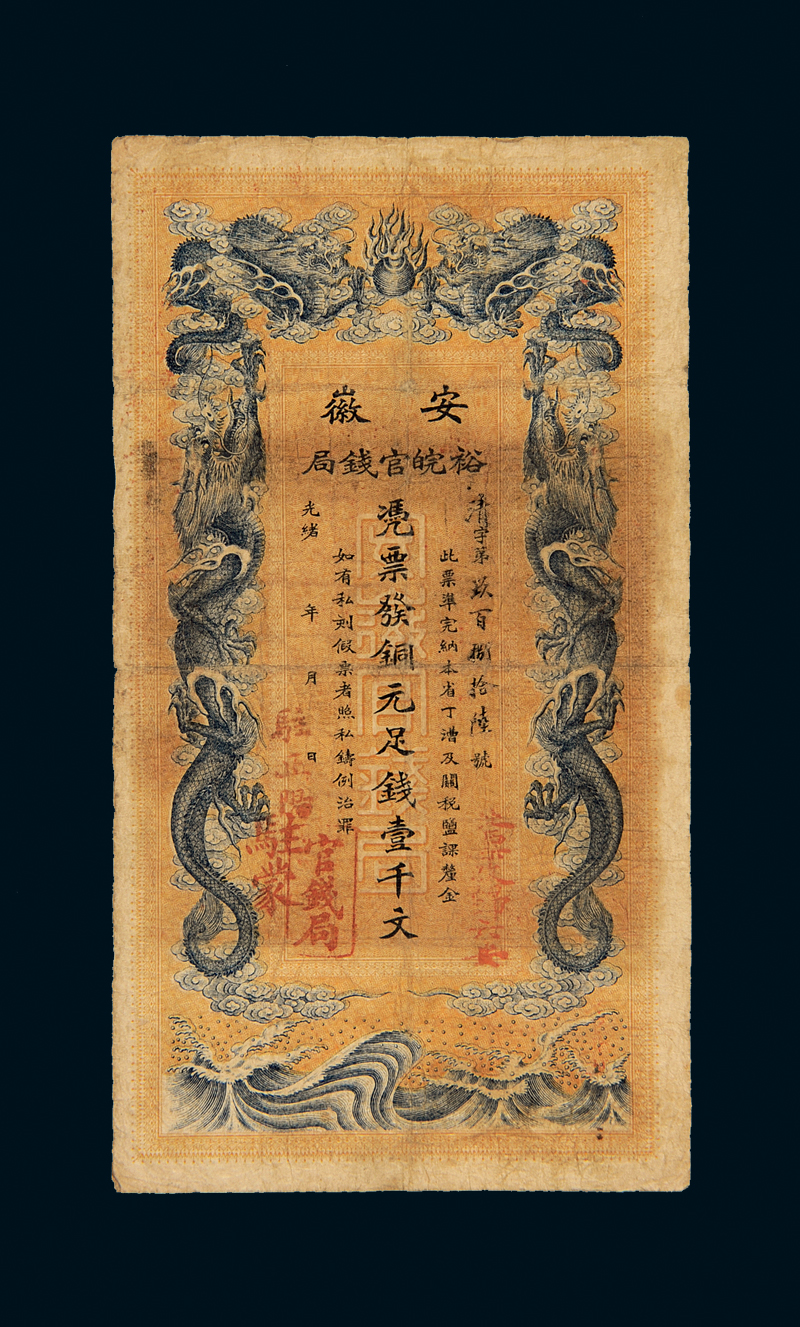 安徽
裕皖官錢局
清字第玖百捌拾陸號
此票準完納本省丁漕及關稅鹽課釐金
憑票發銅元足錢壹千文
如有私刻假票者照私鑄例治罪
光緒 年 月 日
駐正陽
駐蒙
官錢局